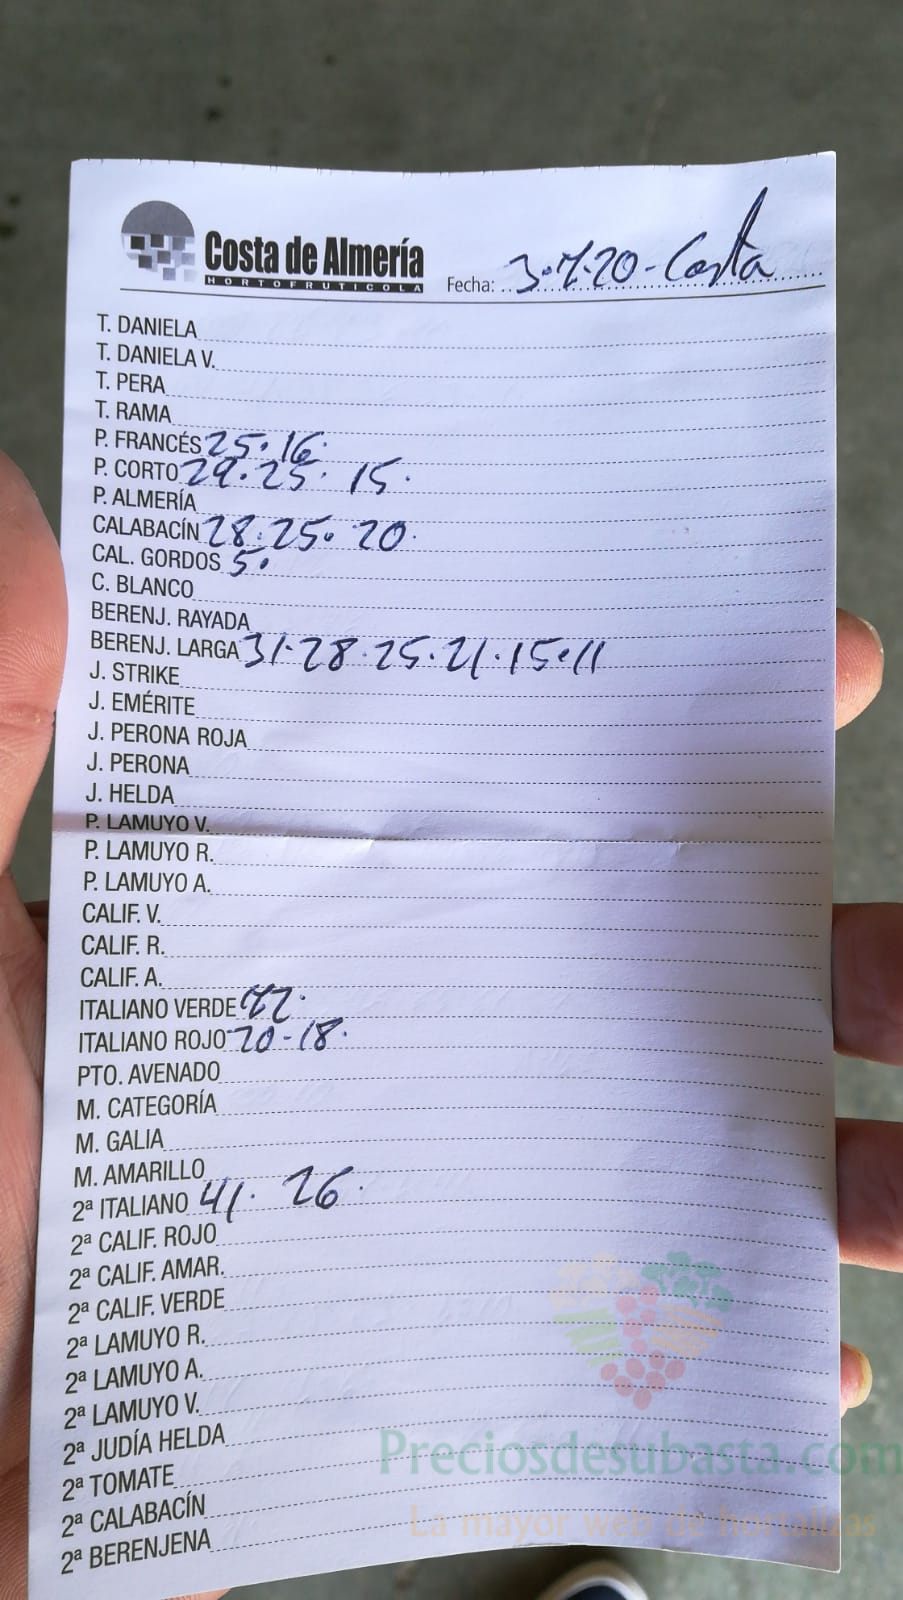 Costa de Almería
HORTOFRUTICOLA
Fecha: 3.7.20 - Costa
T. DANIELA
T. DANIELA V.
T. PERA
T. RAMA
P. FRANCÉS 25. 16.
P. CORTO 29. 25. 15.
P. ALMERÍA
CALABACÍN 28. 25. 20.
CAL. GORDOS 5.
C. BLANCO
BERENJ. RAYADA
BERENJ. LARGA 31. 28. 25. 21. 15. 11
J. STRIKE
J. EMÉRITE
J. PERONA ROJA
J. PERONA
J. HELDA
P. LAMUYO V.
P. LAMUYO R.
P. LAMUYO A.
CALIF. V.
CALIF. R.
CALIF. A.
ITALIANO VERDE
ITALIANO ROJO 20 - 18.
PTO. AVENADO
M. CATEGORÍA
M. GALIA
M. AMARILLO
2ª ITALIANO 41. 26.
2ª CALIF. ROJO
2ª CALIF. AMAR.
2ª CALIF. VERDE
2ª LAMUYO R.
2ª LAMUYO A.
2ª LAMUYO V.
2ª JUDÍA HELDA
2ª TOMATE
2ª CALABACÍN
2ª BERENJENA
Preciosdesubasta.com
La mayor web de hortalizas